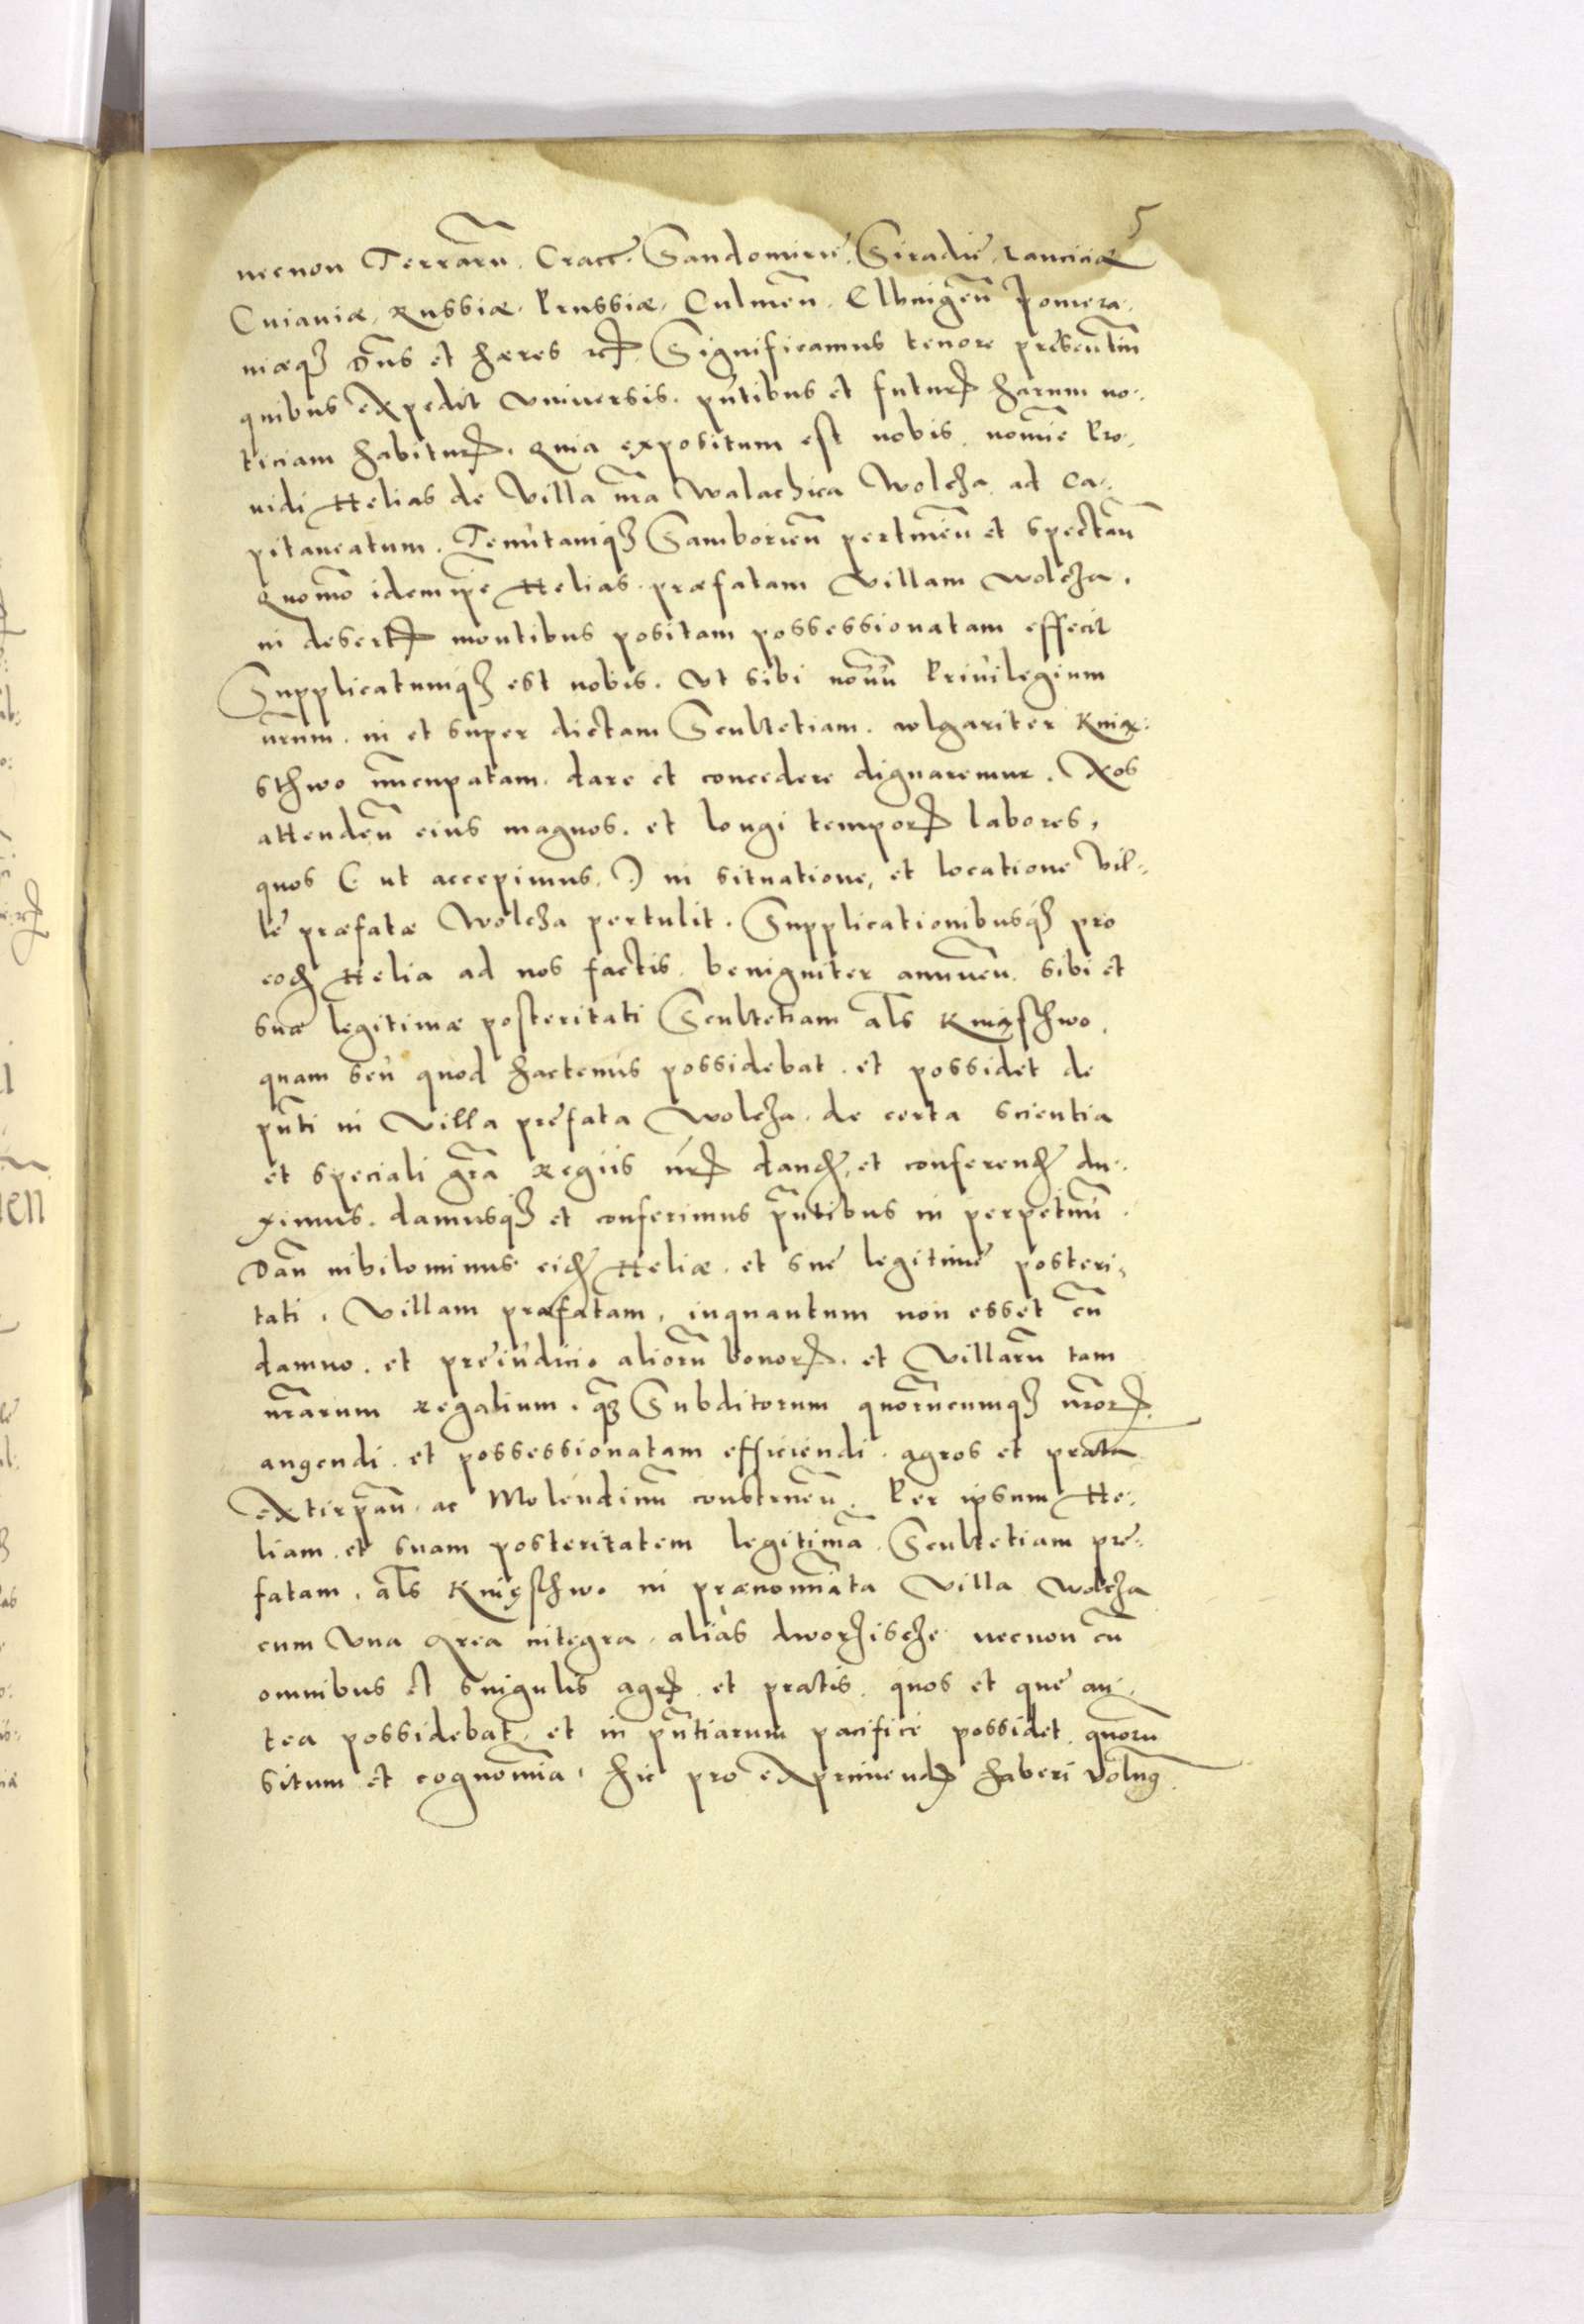 5
necnon Terrarũ. Cracẽ. Sandomirie. Siradie. Lanciciæ
Cuiauiæ. Russiæ. Prussiæ. Culmeñ. Elbingeñ Pomera:
niæq̃ Dñs et hæres etc̃. Significamus tenore presentiũ
quibus expedit vniuersis. pñtibus et futuris harum no:
ticiam habituris. Quia expositum est nobis. nomĩe Pro:
uidi Helias de Villa nr̃a Walachica Wolcza. ad Ca:
pitaneatum. Tenutamq̃ Samborieñ pertineñ et spectañ
Quomõ idem ip̃e Helias. præfatam Villam Wolcza.
in desertis montibus positam possessionatam effecit
Supplicatumq̃ est nobis. Vt sibi nouũ Priuilegium
nr̃um. in et super dictam Scultetiam. wlgariter Kniæ:
sthwo nũcupatam. dare et concedere dignaremur. Nos
attendeñ eius magnos. et longi temporis labores,
quos (: ut accepimus. :) in situatione, et locatione Vil:
le præfatæ Wolcza pertulit. Supplicationibusq̃ pro
eod̃ Helia ad nos factis. benigniter annueñ. sibi et
suæ legitimæ posteritati Scultetiam al̃s Knięsthwo.
quam seu quod hactenus possidebat. et possidet de
pñti in Villa prefata Wolcza. de certa scientia
et speciali gr̃a Regiis nr̃is dand̃, et conferend̃ du:
ximus. damusq̃ et conferimus p̃ntibus in perpetuũ.
Dañ nihilominus eid̃ Heliæ. et sue legitime posteri:
tati. Villam præfatam, inquantum non esset cũ
damno. et preiudicio aliorũ bonorum. et Villarũ tam
nr̃arum Regalium. q̃ Subditorum quorũcumq̃ nr̃orum.
augendi. et possessionatam efficiendi. agros et prata
extirpañ. ac Molendinũ construeñ. Per ipsum He:
liam. et suam posteritatem legitimã. Scultetiam pre:
fatam. al̃s Knięsthwo in prænominãta Villa Wolcza
cum Vna Area integra. alias dworzische necnon cũ
omnibus et singulis agris. et pratis. quos et que an:
tea possidebat. et in pñtiarum pacifice possidet. quorũ
situm et cognomĩa. hic pro exprimendis haberi Volumꝰ.